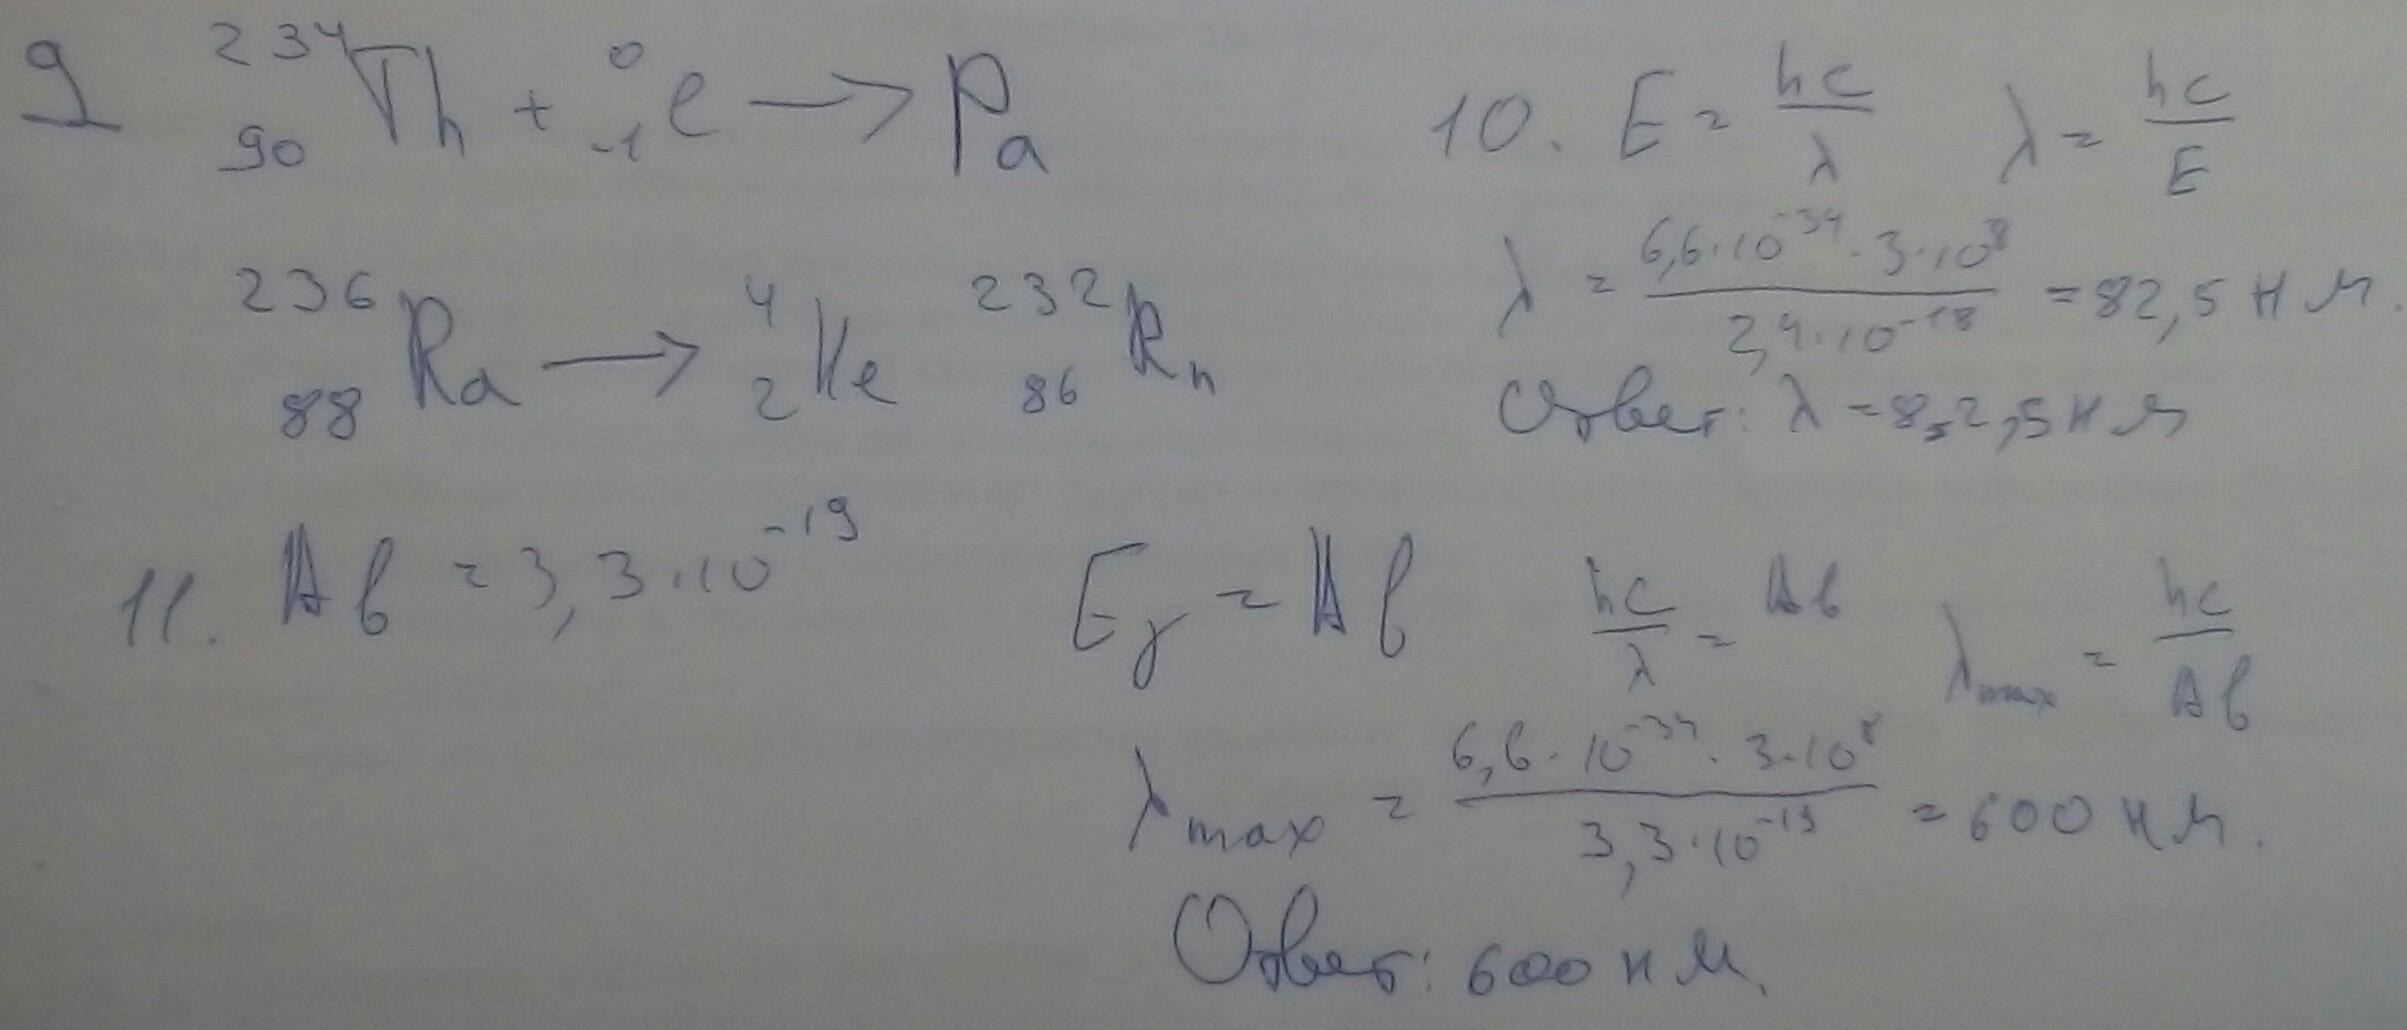 9 ²³⁴₉₀Th + ⁰₋₁e → Pa
²³⁶₈₈Ra → ⁴₂He ²³²₈₆Rn
10. E = hc/λ λ = hc/E
λ = 6,6·10⁻³⁴·3·10⁸ / 2,4·10⁻¹⁸ = 82,5 нм.
Ответ: λ = 82,5 нм
11. Aв = 3,3·10⁻¹⁹
Eγ = Aв hc/λ = Aв λmax = hc/Aв
λmax = 6,6·10⁻³⁴·3·10⁸ / 3,3·10⁻¹⁹ = 600 нм.
Ответ: 600 нм.